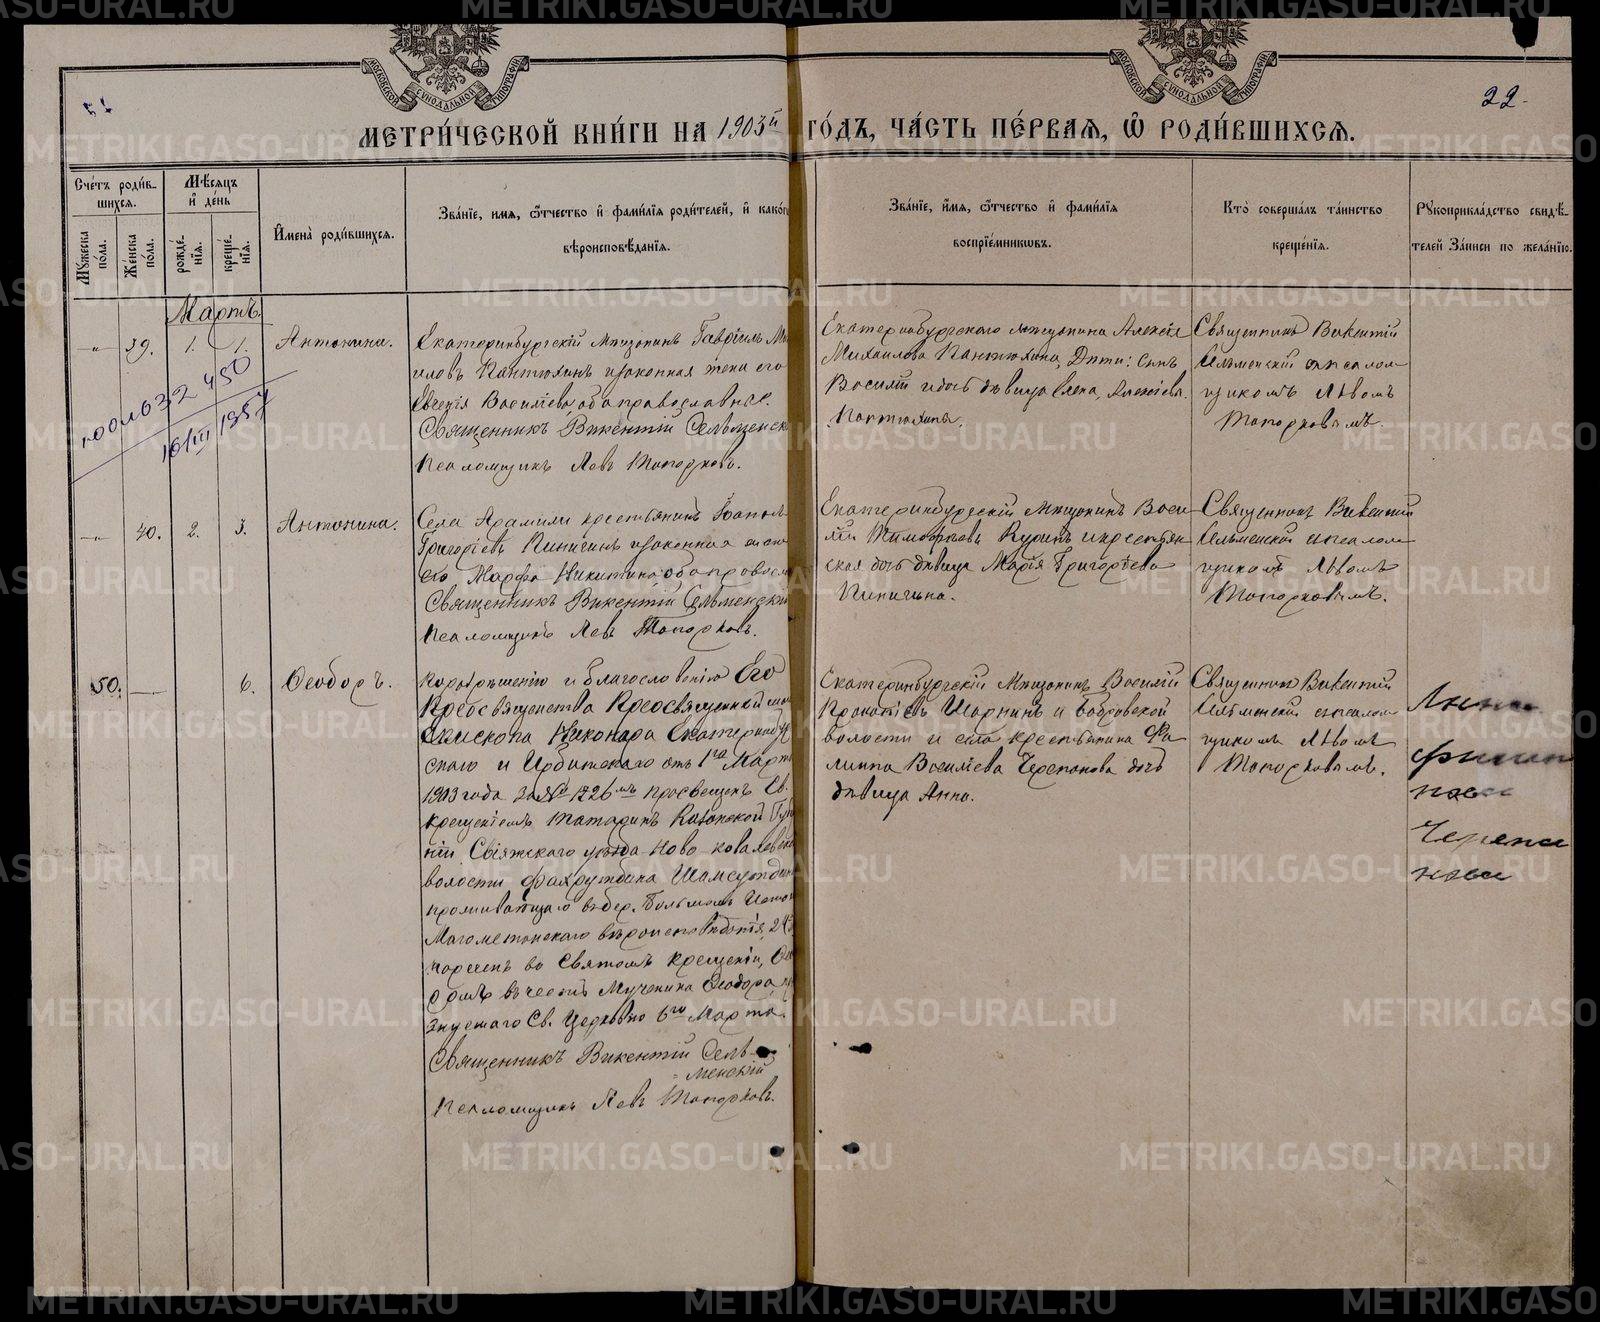 22.
МОСКОВСКОЙ СѴНОДАЛЬНОЙ ТИПОГРАФІИ
МОСКОВСКОЙ СѴНОДАЛЬНОЙ ТИПОГРАФІИ
МЕТРИ́ЧЕСКОЙ КНИ́ГИ НА 1903й ГО́ДЪ, ЧА́СТЬ ПЕ́РВАѦ, Ѡ҆ РОДИ́ВШИХСѦ.
Сче́тъ роди́в-
шихся.
Мꙋжеска по́ла.
Же́нска по́ла.
Мѣ́сяцъ
и҆ де́нь
рожде́нїя.
креще́нїя.
И҆мена̀ роди́вшихся.
Зва́нїе, и҆мя, ѻ҆́тчество и҆ фами́лїя роди́телей, и҆ како́г
вѣроисповѣ́данїя.
Зва́нїе, и҆́мя, ѻ҆́тчество и҆ фами́лїя
воспрїе́мниковъ.
Кто̀ соверша́лъ та́инство
креще́нїя.
Рꙋкоприкла́дство свидѣ́-
телей За́писи по жела́нїю.
Мартъ
39. 1. 1.
Антонина.
Екатеринбургскій мѣщанинъ Гавріилъ
иловъ Пантюхинъ и законная жена его
Евгенія Васильева, оба православные.
Священникъ Викентій Сельменск
Псаломщикъ Левъ Топорковъ.
Екатеринбургскаго мѣщанина Алексѣя
Михаилова Пантюхина, Дѣти: сынъ
Василій и дочь дѣвица Елена, Алексѣевы
Пантюхины.
Священникъ Викентій
Сельменскій съ псалом
щикомъ Львомъ
Топорковымъ.
100 л 632 450
16/III 1957
40. 2. 3.
Антонина.
Села Арамили крестьянинъ
Григорьевъ Пинигинъ и законная жена
его Марфа Никитина, оба правосла
Священникъ Викентій Сельменскій
Псаломщикъ Левъ Топорковъ.
Екатеринбургскій мѣщанинъ Васи
лій Тимофѣевъ Куринъ и крестьян
ская дочь дѣвица Марія Григорьева
Пинигина.
Священникъ Викентій
Сельменскій съ псалом
щикомъ Львомъ
Топорковымъ.
50. — 6.
Ѳеодоръ.
По разрѣшенію и благословенію Его
Преосвященства Преосвященнѣйшаго
Епископа Никанора Екатеринбург
скаго и Ирбитскаго отъ 1го Март
1903 года за № 1726мъ просвещенъ Св.
крещеніемъ татаринъ Казанской Губ
ніи Свіяжского уѣзда Ново-Ковалевской
волости Фахрутдина Шамсутдин
проживающаго въ дер. Большомъ Исто
Магометанского вѣроисповѣданія, 24
нареченъ во Святомъ Крещеніи, Ѳе
доромъ въ честь Мученика Ѳеодора, пр
знуемаго Св. Церковью 6го Марта.
Священникъ Викентій Сель-
менскій
Псаломщикъ Левъ Топорковъ.
Екатеринбургскій мѣщанинъ Василій
Прокопьевъ и Бобровской
волости и села крестьянина Фи
липпа Васильева Черепанова дочь
дѣвица Анна.
Священникъ Викентій
Сельменскій съ псалом
щикомъ Львомъ
Топорковымъ.
Анна
Филип
пова
Черепа
нова
METRIKI.GASO-URAL.RU